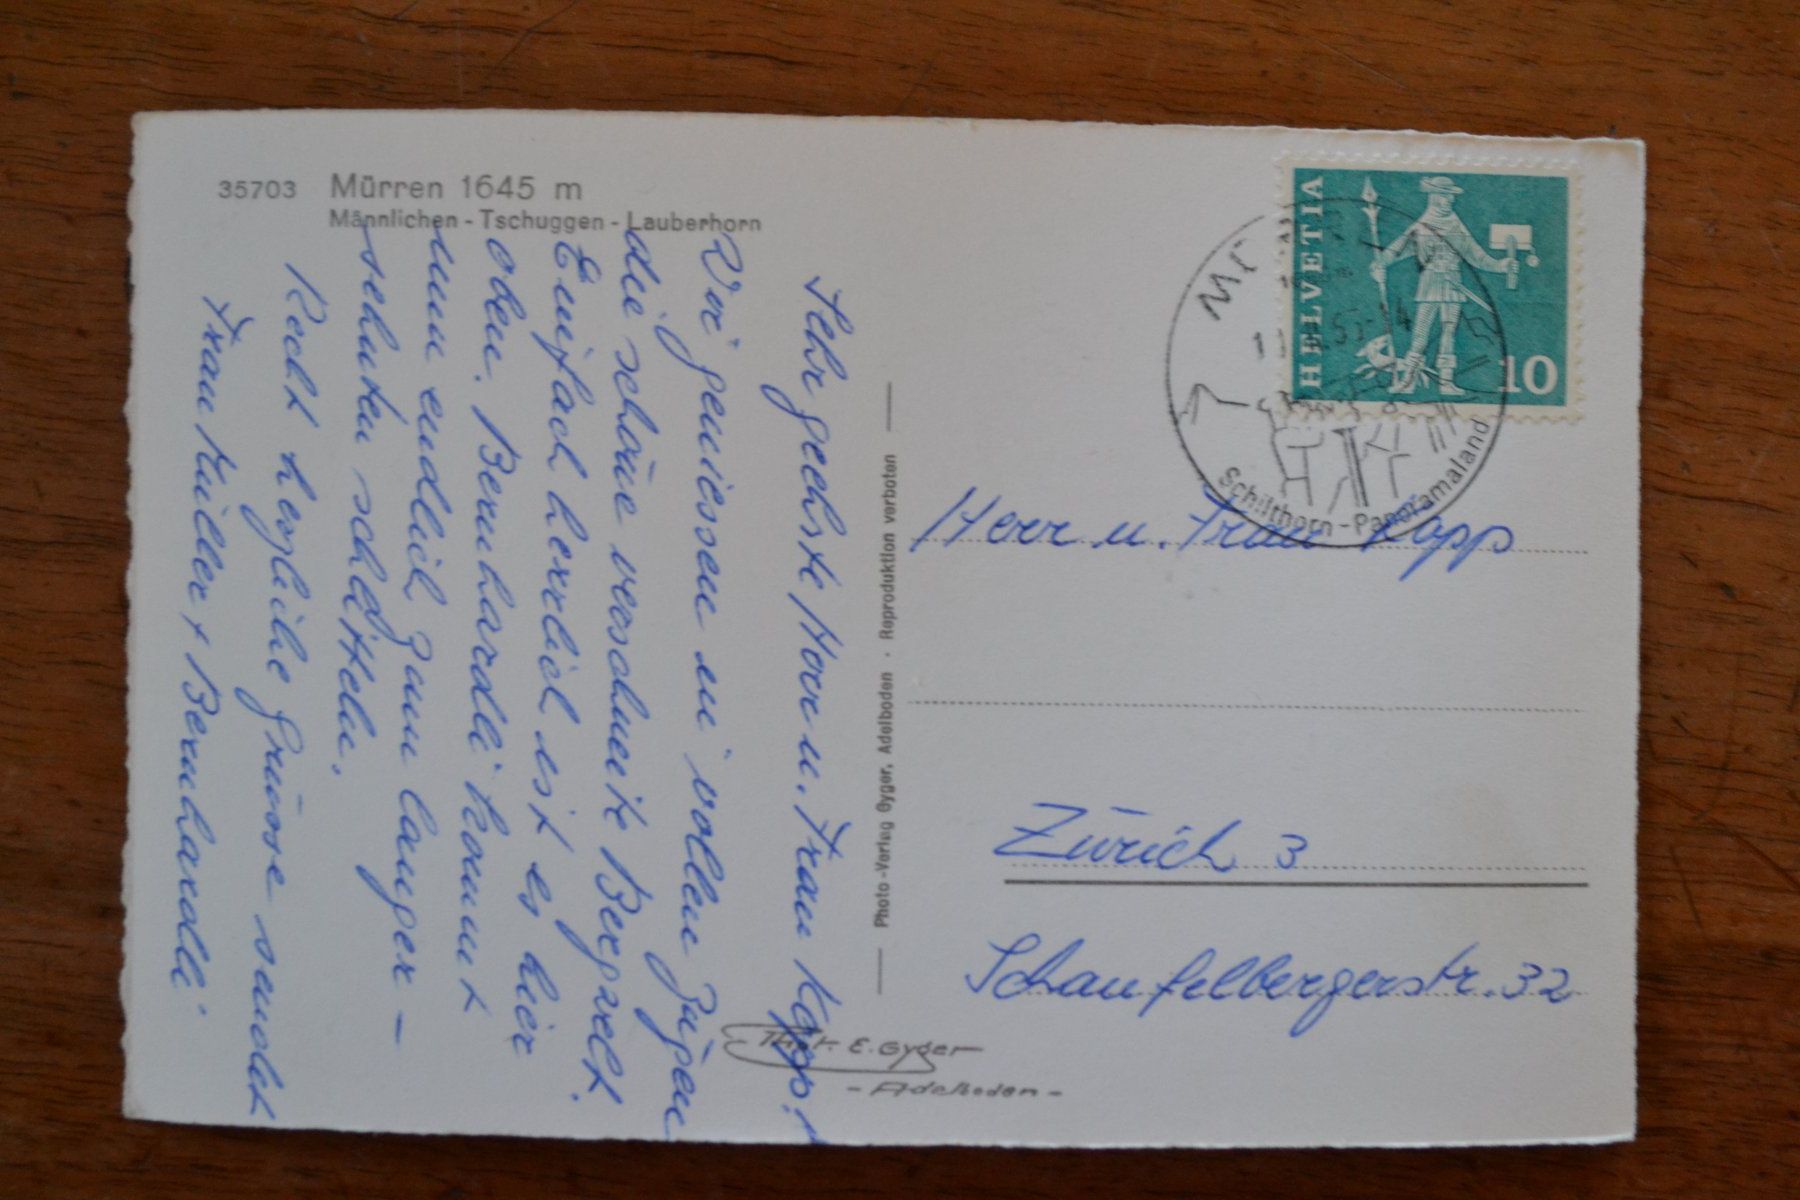 35703 Mürren 1645 m
Männlichen - Tschuggen - Lauberhorn
Sehr geehrte Herr u. Frau Kopp!
Wir geniessen in vollen Zügen
die schöne verschneite Bergwelt.
Einfach herrlich ist es hier
oben. Bernhardli kommt
nun endlich zum langer-
sehnten schlitteln.
Recht herzliche Grüsse sendet
Frau Müller + Bernhardli
Photo-Verlag Gyger, Adelboden · Reproduktion verboten
Phot. E. Gyger
- Adelboden -
HELVETIA
10
Schilthorn - Panoramaland
Herr u. Frau Kopp
Zürich 3
Schaufelbergerstr. 32